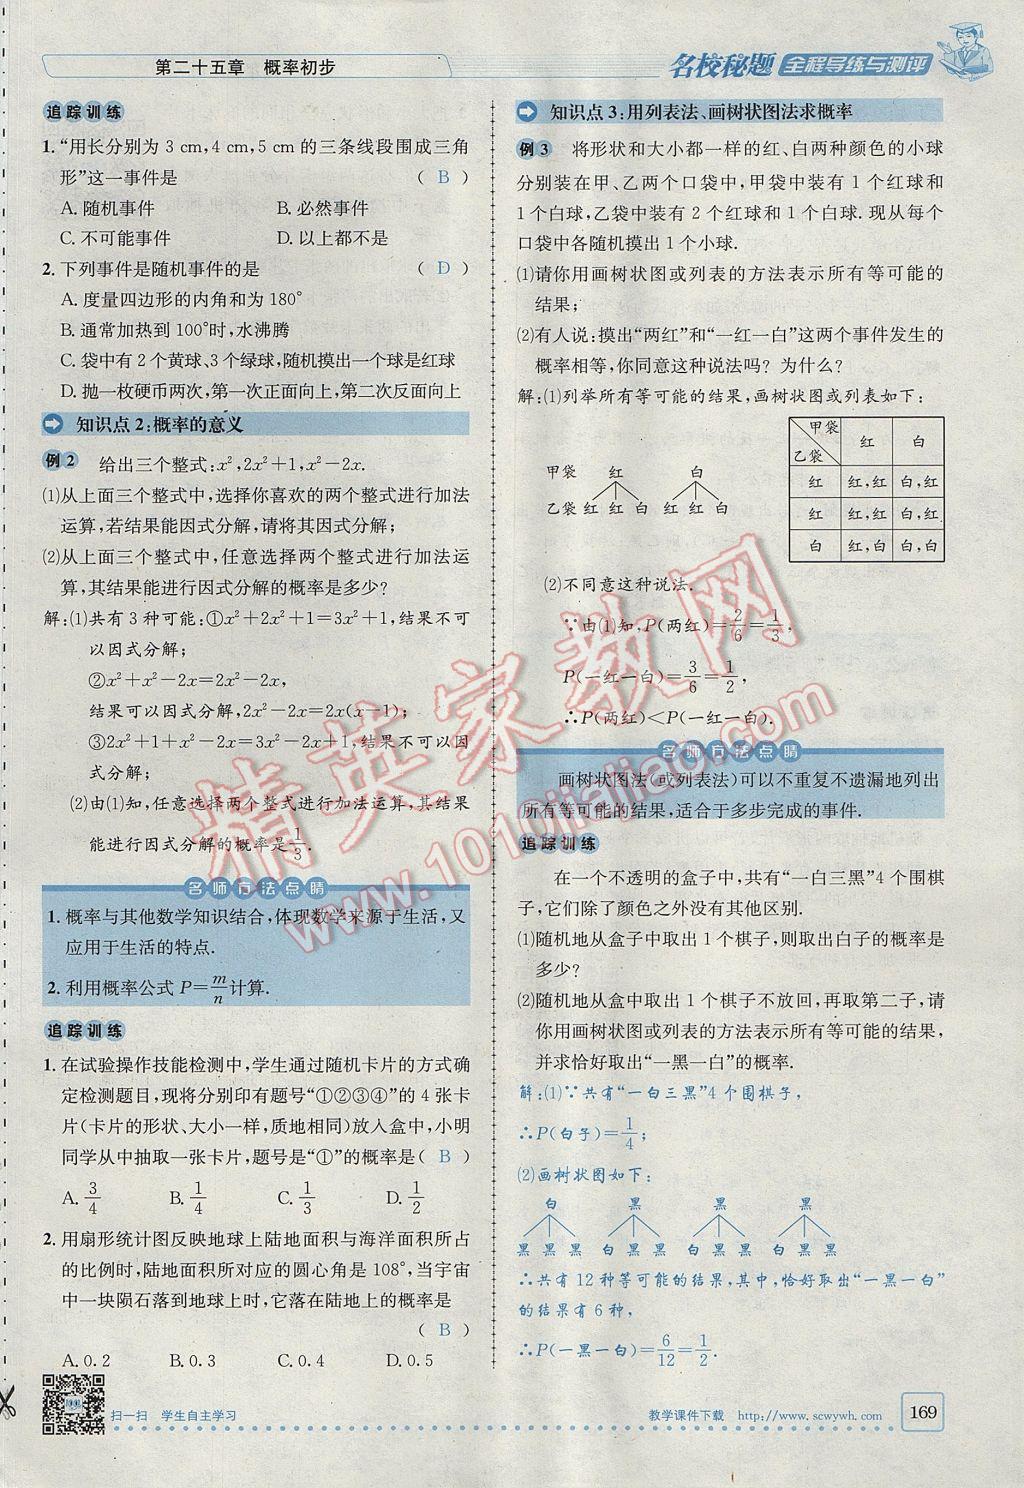 第二十五章　概率初步
名校秘题 全程导练与测评
追踪训练
1. “用长分别为 3 cm,4 cm,5 cm 的三条线段围成三角
形”这一事件是 ( B )
A. 随机事件 B. 必然事件
C. 不可能事件 D. 以上都不是
2. 下列事件是随机事件的是 ( D )
A. 度量四边形的内角和为 180°
B. 通常加热到 100°时,水沸腾
C. 袋中有 2 个黄球、3 个绿球,随机摸出一个球是红球
D. 抛一枚硬币两次,第一次正面向上,第二次反面向上
知识点 2:概率的意义
例 2 给出三个整式:x²,2x²+1,x²-2x.
(1)从上面三个整式中,选择你喜欢的两个整式进行加法
运算,若结果能因式分解,请将其因式分解;
(2)从上面三个整式中,任意选择两个整式进行加法运
算,其结果能进行因式分解的概率是多少?
解:(1)共有 3 种可能:①x²+2x²+1=3x²+1,结果不可
以因式分解;
②x²+x²-2x=2x²-2x,
结果可以因式分解,2x²-2x=2x(x-1);
③2x²+1+x²-2x=3x²-2x+1,结果不可以因
式分解;
(2)由(1)知,任意选择两个整式进行加法运算,其结果
能进行因式分解的概率是1/3.
名师方法点睛
1. 概率与其他数学知识结合,体现数学来源于生活,又
应用于生活的特点.
2. 利用概率公式 P=m/n计算.
追踪训练
1. 在试验操作技能检测中,学生通过随机卡片的方式确
定检测题目,现将分别印有题号“①②③④”的 4 张卡
片(卡片的形状、大小一样,质地相同)放入盒中,小明
同学从中抽取一张卡片,题号是“①”的概率是( B )
A. 3/4 B. 1/4 C. 1/3 D. 1/2
2. 用扇形统计图反映地球上陆地面积与海洋面积所占
的比例时,陆地面积所对应的圆心角是 108°,当宇宙
中一块陨石落到地球上时,它落在陆地上的概率是
( B )
A. 0.2 B. 0.3 C. 0.4 D. 0.5
扫一扫　学生自主学习
知识点 3:用列表法、画树状图法求概率
例 3 将形状和大小都一样的红、白两种颜色的小球
分别装在甲、乙两个口袋中,甲袋中装有 1 个红球和
1 个白球,乙袋中装有 2 个红球和 1 个白球. 现从每个
口袋中各随机摸出 1 个小球.
(1)请你用画树状图或列表的方法表示所有等可能的
结果;
(2)有人说:摸出“两红”和“一红一白”这两个事件发生的
概率相等,你同意这种说法吗? 为什么?
解:(1)列举所有等可能的结果,画树状图或列表如下:
甲袋 红 白
乙袋 红 红 白 红 红 白
甲袋 乙袋 红 白
红 红,红 白,红
红 红,红 白,红
白 红,白 白,白
(2)不同意这种说法.
∵由(1)知,P(两红)=2/6=1/3,
P(一红一白)=3/6=1/2,
∴P(两红)<P(一红一白).
名师方法点睛
画树状图法(或列表法)可以不重复不遗漏地列出
所有等可能的结果,适合于多步完成的事件.
追踪训练
在一个不透明的盒子中,共有“一白三黑”4 个围棋
子,它们除了颜色之外没有其他区别.
(1)随机地从盒子中取出 1 个棋子,则取出白子的概率是
多少?
(2)随机地从盒中取出 1 个棋子不放回,再取第二子,请
你用画树状图或列表的方法表示所有等可能的结果,
并求恰好取出“一黑一白”的概率.
解:(1)∵共有“一白三黑”4 个围棋子,
∴P(白子)=1/4;
(2)画树状图如下:
白 黑 黑 黑
黑 黑 黑 白 黑 黑 白 黑 黑 白 黑 黑
∴共有 12 种等可能的结果,其中,恰好取出“一黑一白”
的结果有 6 种,
∴P(一黑一白)=6/12=1/2.
教学课件下载　http://www.scwywh.com
169
精英家教网
www.1010jiajiao.com